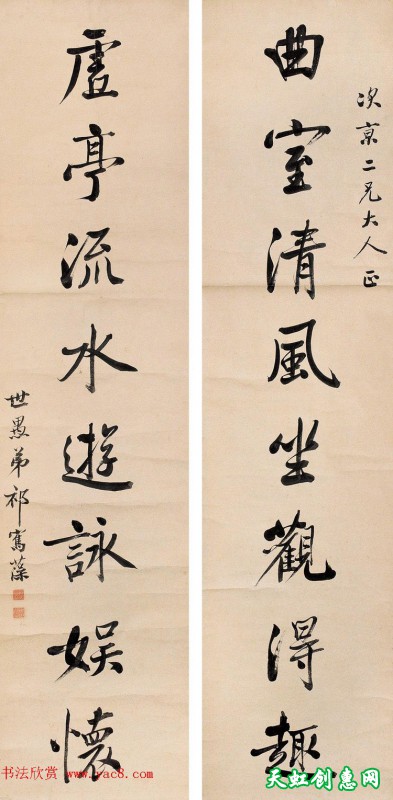 次京二兄大人正
曲室清風坐觀得趣
虚亭流水遊詠娱懷
世愚弟祁寯藻
书法欣赏 www.yac8.com
天虹创意网